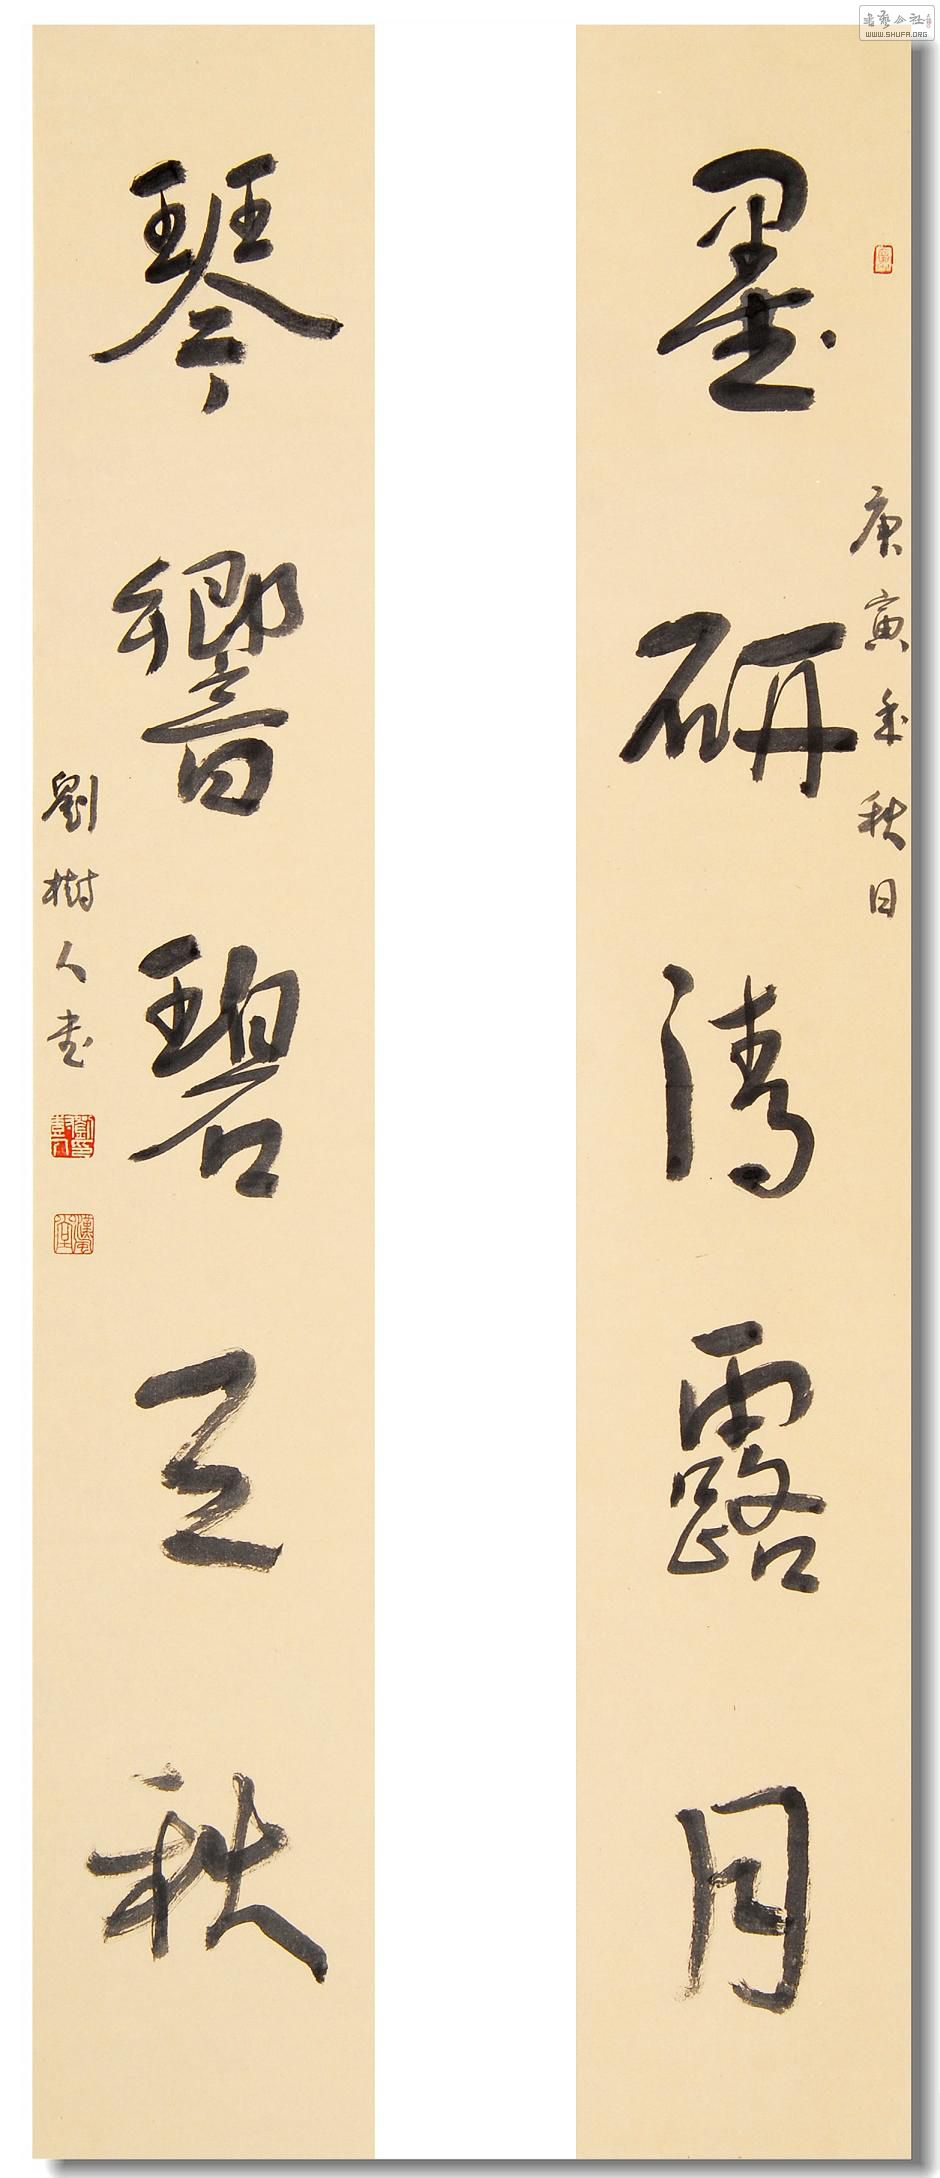 書藝公社
WWW.SHUFA.ORG
庚寅年秋日
墨研清露月
琴響碧天秋
劉樹人書